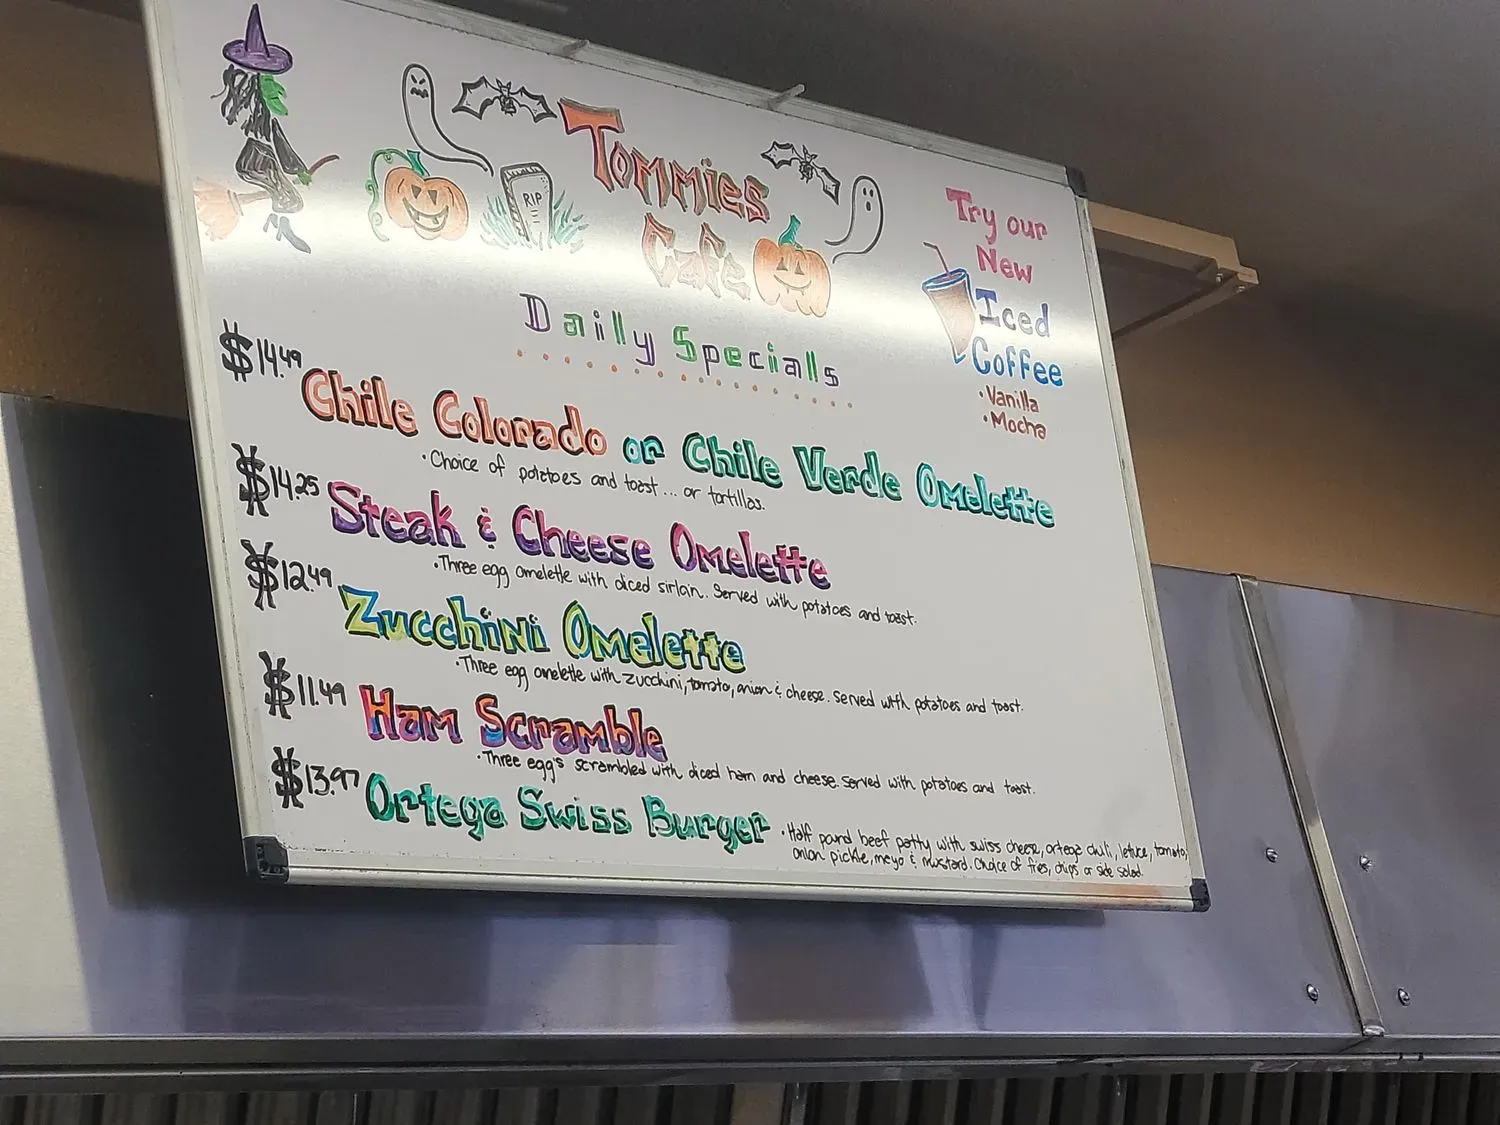 RIP
Tommies
Cafe
Try our
New
Iced
Coffee
• Vanilla
• Mocha
Daily Specials
$14.49 Chile Colorado or Chile Verde Omelette
• Choice of potatoes and toast... or tortillas.
$14.25 Steak & Cheese Omelette
• Three egg omelette with diced sirloin. Served with potatoes and toast.
$12.49 Zucchini Omelette
• Three egg omelette with zucchini, tomato, onion & cheese. Served with potatoes and toast.
$11.49 Ham Scramble
• Three egg's scrambled with diced ham and cheese. Served with potatoes and toast.
$13.97 Ortega Swiss Burger
• Half pound beef patty with swiss cheese, ortega chili, lettuce, tomato,
onion pickle, mayo & mustard. Choice of fries, chips or side salad.